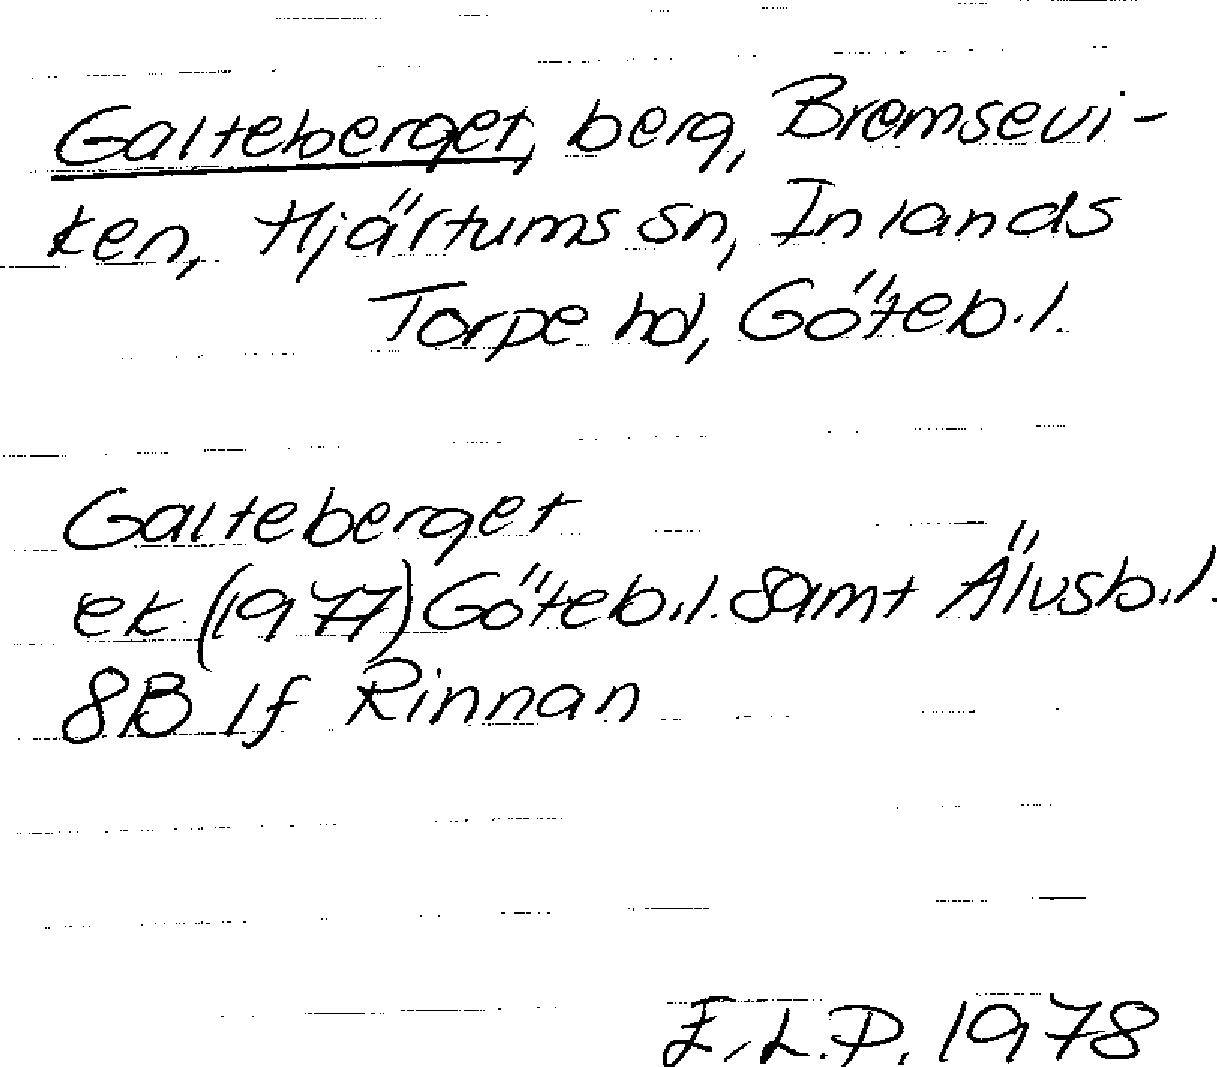 Galteberget, berg, Bremsevi-
ken, Hjärtums sn, Inlands
Torpe hd, Göteb.l.
Galteberget
ek (1977) Göteb.l. samt Älvsb.l.
8B 1f Rinnan
E.L.P. 1978